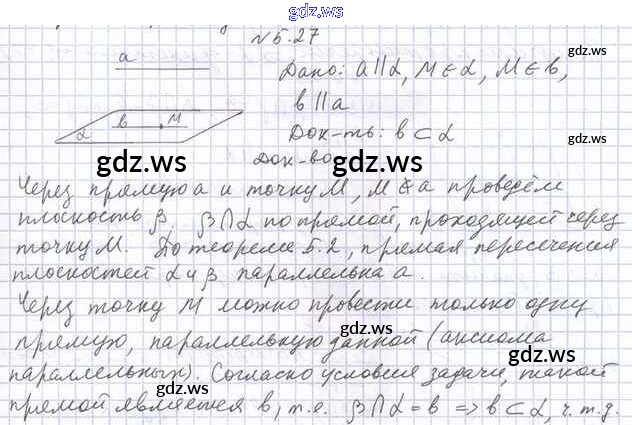 gdz.ws
N 5.27
a
gdz.ws
Дано: a ∥ α, M ∈ α, M ∈ b,
b ∥ a
b M
α
Док-ть: b ⊂ α
gdz.ws
gdz.ws
Док-во
Через прямую a и точку M, M ∉ a проведём
плоскость β, β ∩ α по прямой, проходящей через
точку M. По теореме 5.2, прямая пересечения
плоскостей α и β параллельна a.
gdz.ws
gdz.ws
Через точку M можно провести только одну
прямую, параллельную данной (аксиома
gdz.ws
параллельных). Согласно условия задачи, такой
gdz.ws
gdz.ws
прямой является b, т.е. β ∩ α = b => b ⊂ α, ч.т.д.
gdz.ws